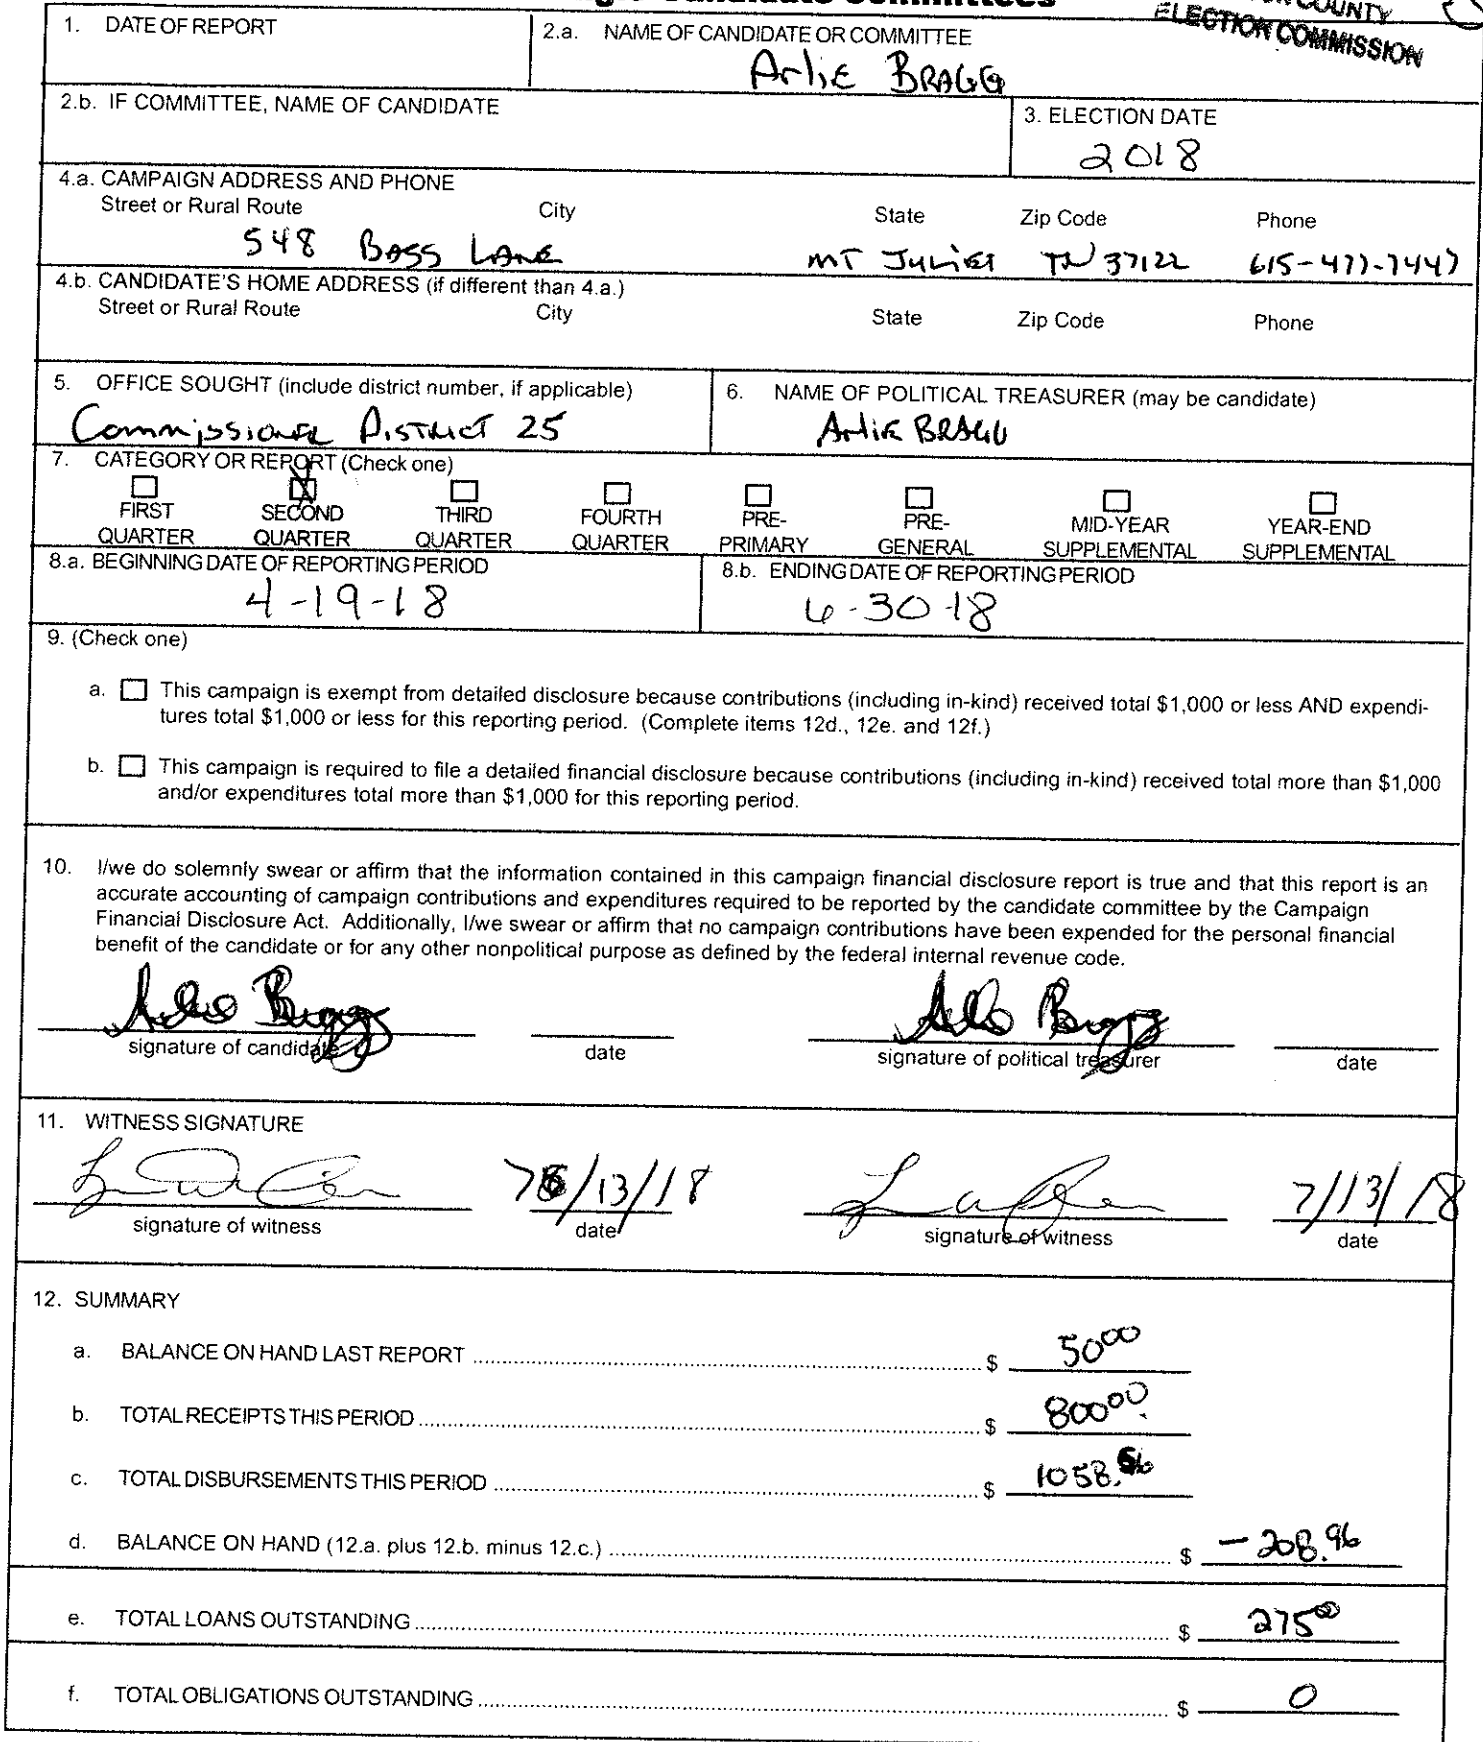 Candidate Committees
COUNTY
ELECTION COMMISSION
1. DATE OF REPORT
2.a. NAME OF CANDIDATE OR COMMITTEE
ArliE BRAGG
2.b. IF COMMITTEE, NAME OF CANDIDATE
3. ELECTION DATE
2018
4.a. CAMPAIGN ADDRESS AND PHONE
Street or Rural Route City State Zip Code Phone
548 BASS LANE MT JULIET TN 37122 615-477-7447
4.b. CANDIDATE'S HOME ADDRESS (if different than 4.a.)
Street or Rural Route City State Zip Code Phone
5. OFFICE SOUGHT (include district number, if applicable)
Commissioner District 25
6. NAME OF POLITICAL TREASURER (may be candidate)
Arlie BRAGG
7. CATEGORY OR REPORT (Check one)
FIRST QUARTER
SECOND QUARTER
THIRD QUARTER
FOURTH QUARTER
PRE-PRIMARY
PRE-GENERAL
MID-YEAR SUPPLEMENTAL
YEAR-END SUPPLEMENTAL
8.a. BEGINNING DATE OF REPORTING PERIOD
4-19-18
8.b. ENDING DATE OF REPORTING PERIOD
6-30-18
9. (Check one)
a. This campaign is exempt from detailed disclosure because contributions (including in-kind) received total $1,000 or less AND expendi-
tures total $1,000 or less for this reporting period. (Complete items 12d., 12e. and 12f.)
b. This campaign is required to file a detailed financial disclosure because contributions (including in-kind) received total more than $1,000
and/or expenditures total more than $1,000 for this reporting period.
10. I/we do solemnly swear or affirm that the information contained in this campaign financial disclosure report is true and that this report is an
accurate accounting of campaign contributions and expenditures required to be reported by the candidate committee by the Campaign
Financial Disclosure Act. Additionally, I/we swear or affirm that no campaign contributions have been expended for the personal financial
benefit of the candidate or for any other nonpolitical purpose as defined by the federal internal revenue code.
signature of candidate date signature of political treasurer date
11. WITNESS SIGNATURE
/13/18 7/13/18
signature of witness date signature of witness date
12. SUMMARY
a. BALANCE ON HAND LAST REPORT $ 50 00
b. TOTAL RECEIPTS THIS PERIOD $ 800 00
c. TOTAL DISBURSEMENTS THIS PERIOD $ 1058.
d. BALANCE ON HAND (12.a. plus 12.b. minus 12.c.) $ -208.96
e. TOTAL LOANS OUTSTANDING $ 275 00
f. TOTAL OBLIGATIONS OUTSTANDING $ 0